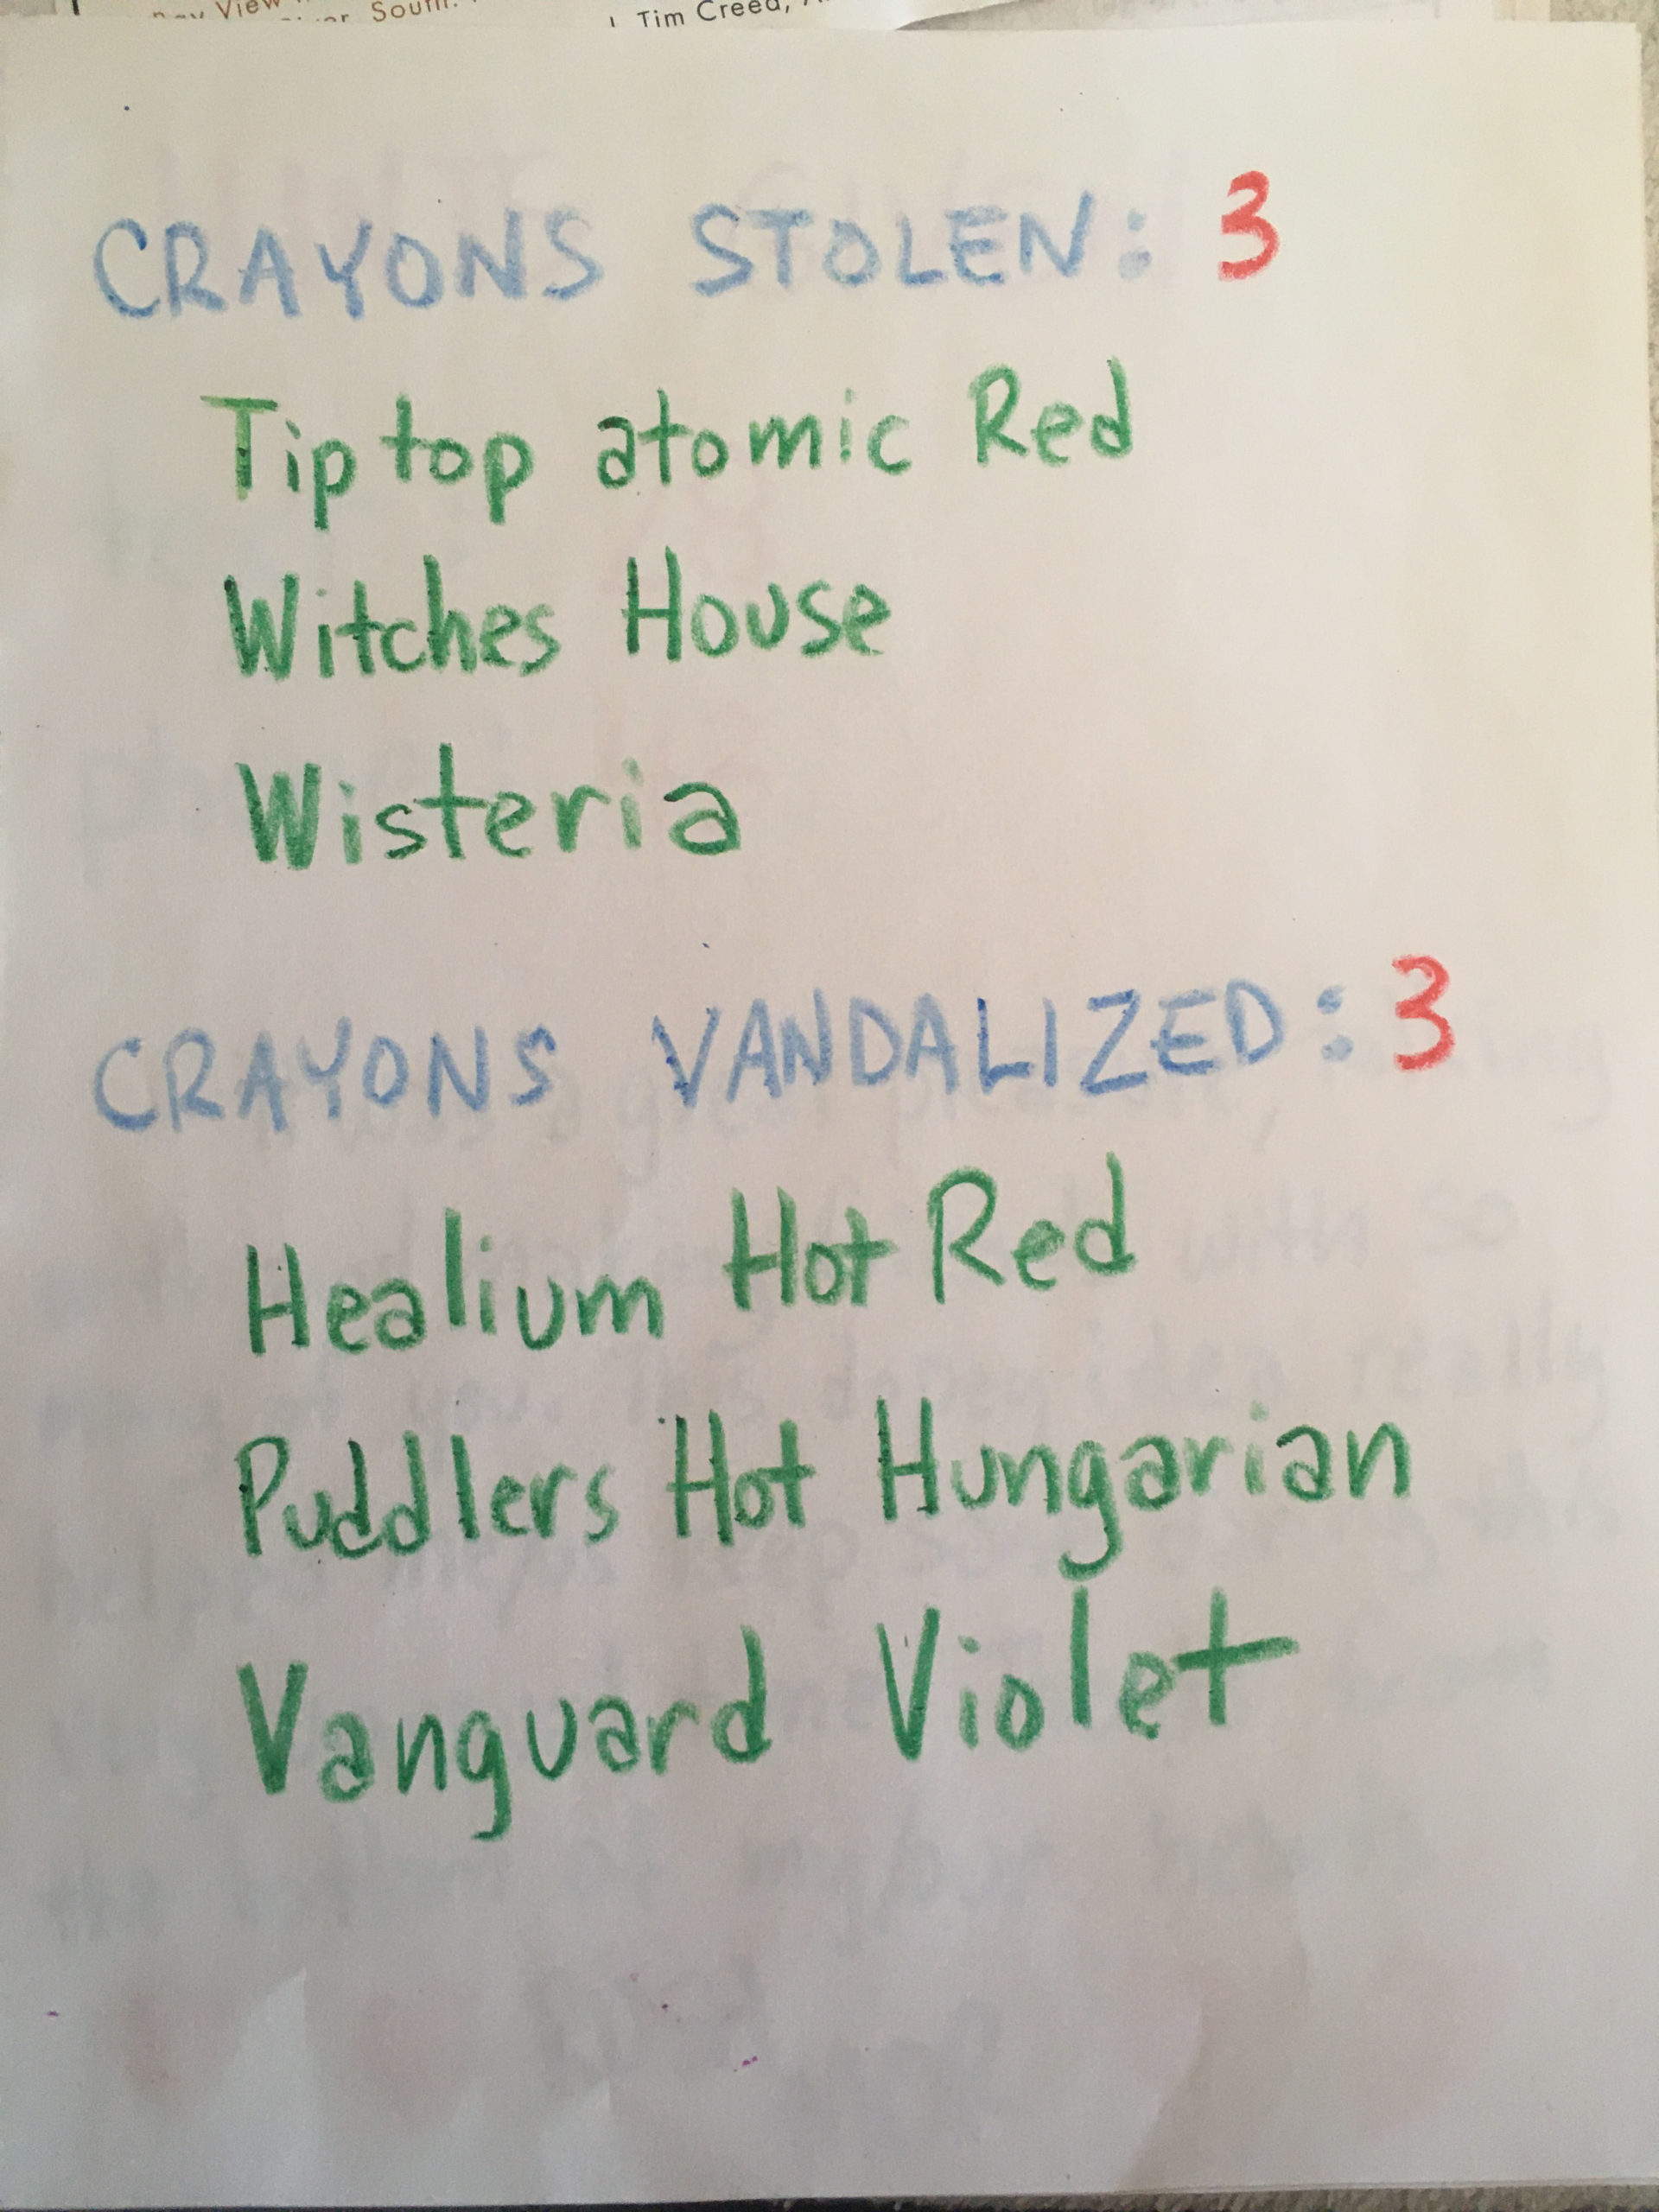 South.
Tim Creed,
CRAYONS STOLEN: 3
Tip top atomic Red
Witches House
Wisteria
CRAYONS VANDALIZED: 3
Healium Hot Red
Puddlers Hot Hungarian
Vanguard Violet